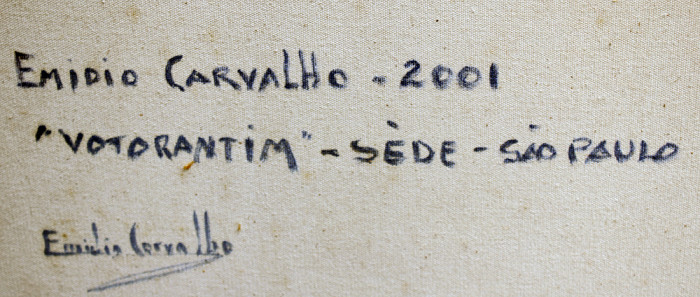 EMIDIO CARVALHO - 2001
"VOTORANTIM" - SÈDE - SÃO PAULO
Emidio Carvalho